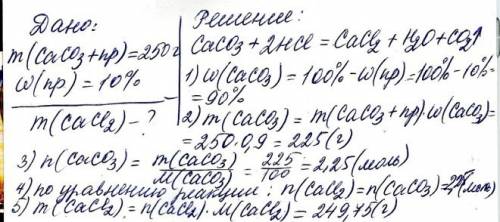 Дано:
m(CaCO3+пр)=250г
w(пр)=10%
m(CaCl2)-?
Решение:
CaCO3+2HCl=CaCl2+H2O+CO2↑
1) w(CaCO3)=100%-w(пр)=100%-10%=
=90%
2) m(CaCO3)=m(CaCO3+пр)·w(CaCO3)=
=250·0,9=225(г)
3) n(CaCO3)=m(CaCO3)/M(CaCO3)=225/100=2,25(моль)
4) по уравнению реакции: n(CaCl2)=n(CaCO3)=(моль)
5) m(CaCl2)=n(CaCl2)·M(CaCl2)=249,75(г)